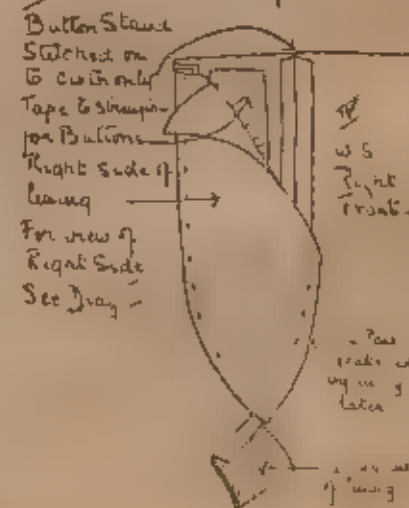 Button Stand
Stitched on
to cloth only
Tape to strengthen
for Buttons
Right Side of
lining
For view of
Right Side
See Diag
WS
Right
Front
later
of lining